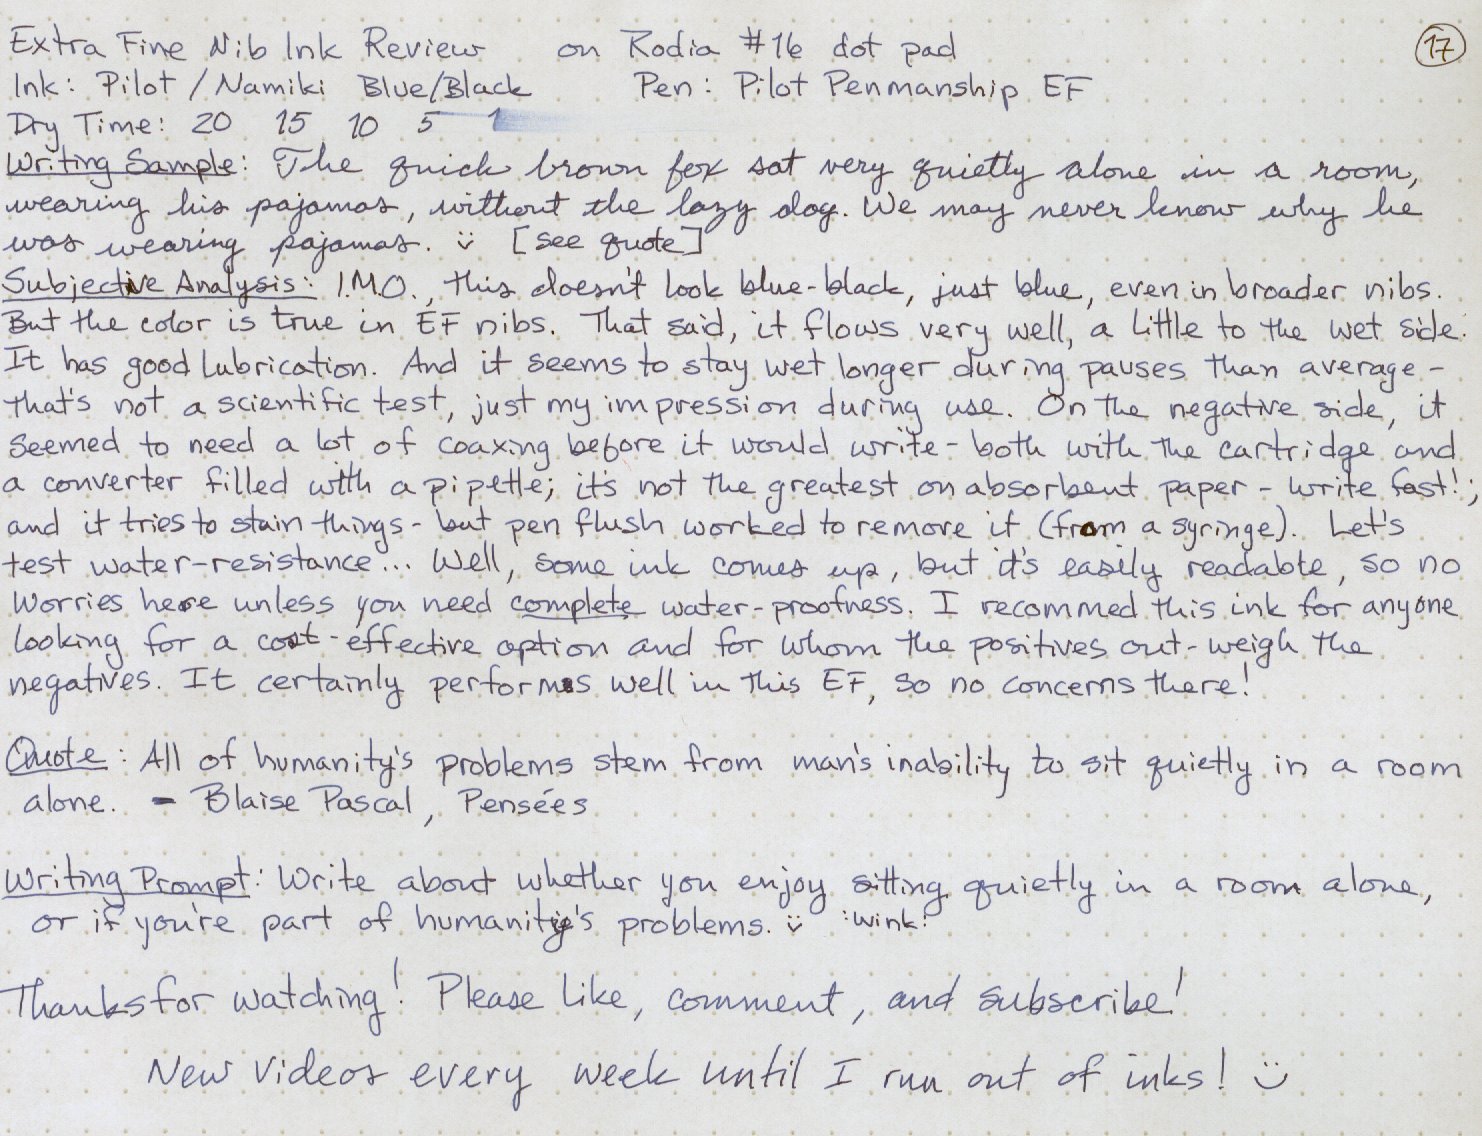 Extra Fine Nib Ink Review on Rodia #16 dot pad 17
Ink: Pilot/Namiki Blue/Black Pen: Pilot Penmanship EF
Dry Time: 20 15 10 5 1
Writing Sample: The quick brown fox sat very quietly alone in a room,
wearing his pajamas, without the lazy dog. We may never know why he
was wearing pajamas. :) [see quote]
Subjective Analysis: I.M.O., this doesn't look blue-black, just blue, even in broader nibs.
But the color is true in EF nibs. That said, it flows very well, a little to the wet side.
It has good lubrication. And it seems to stay wet longer during pauses than average-
that's not a scientific test, just my impression during use. On the negative side, it
seemed to need a lot of coaxing before it would write - both with the cartridge and
a converter filled with a pipette; it's not the greatest on absorbent paper - write fast!;
and it tries to stain things - but pen flush worked to remove it (from a syringe). Let's
test water-resistance... Well, some ink comes up, but it's easily readable, so no
worries here unless you need complete water-proofness. I recommed this ink for anyone
looking for a cost-effective option and for whom the positives out-weigh the
negatives. It certainly performs well in this EF, so no concerns there!
Quote: All of humanity's problems stem from man's inability to sit quietly in a room
alone. - Blaise Pascal, Pensées
Writing Prompt: Write about whether you enjoy sitting quietly in a room alone,
or if you're part of humanity's problems. :) !wink!
Thanks for watching! Please like, comment, and subscribe!
New videos every week until I run out of inks! :)